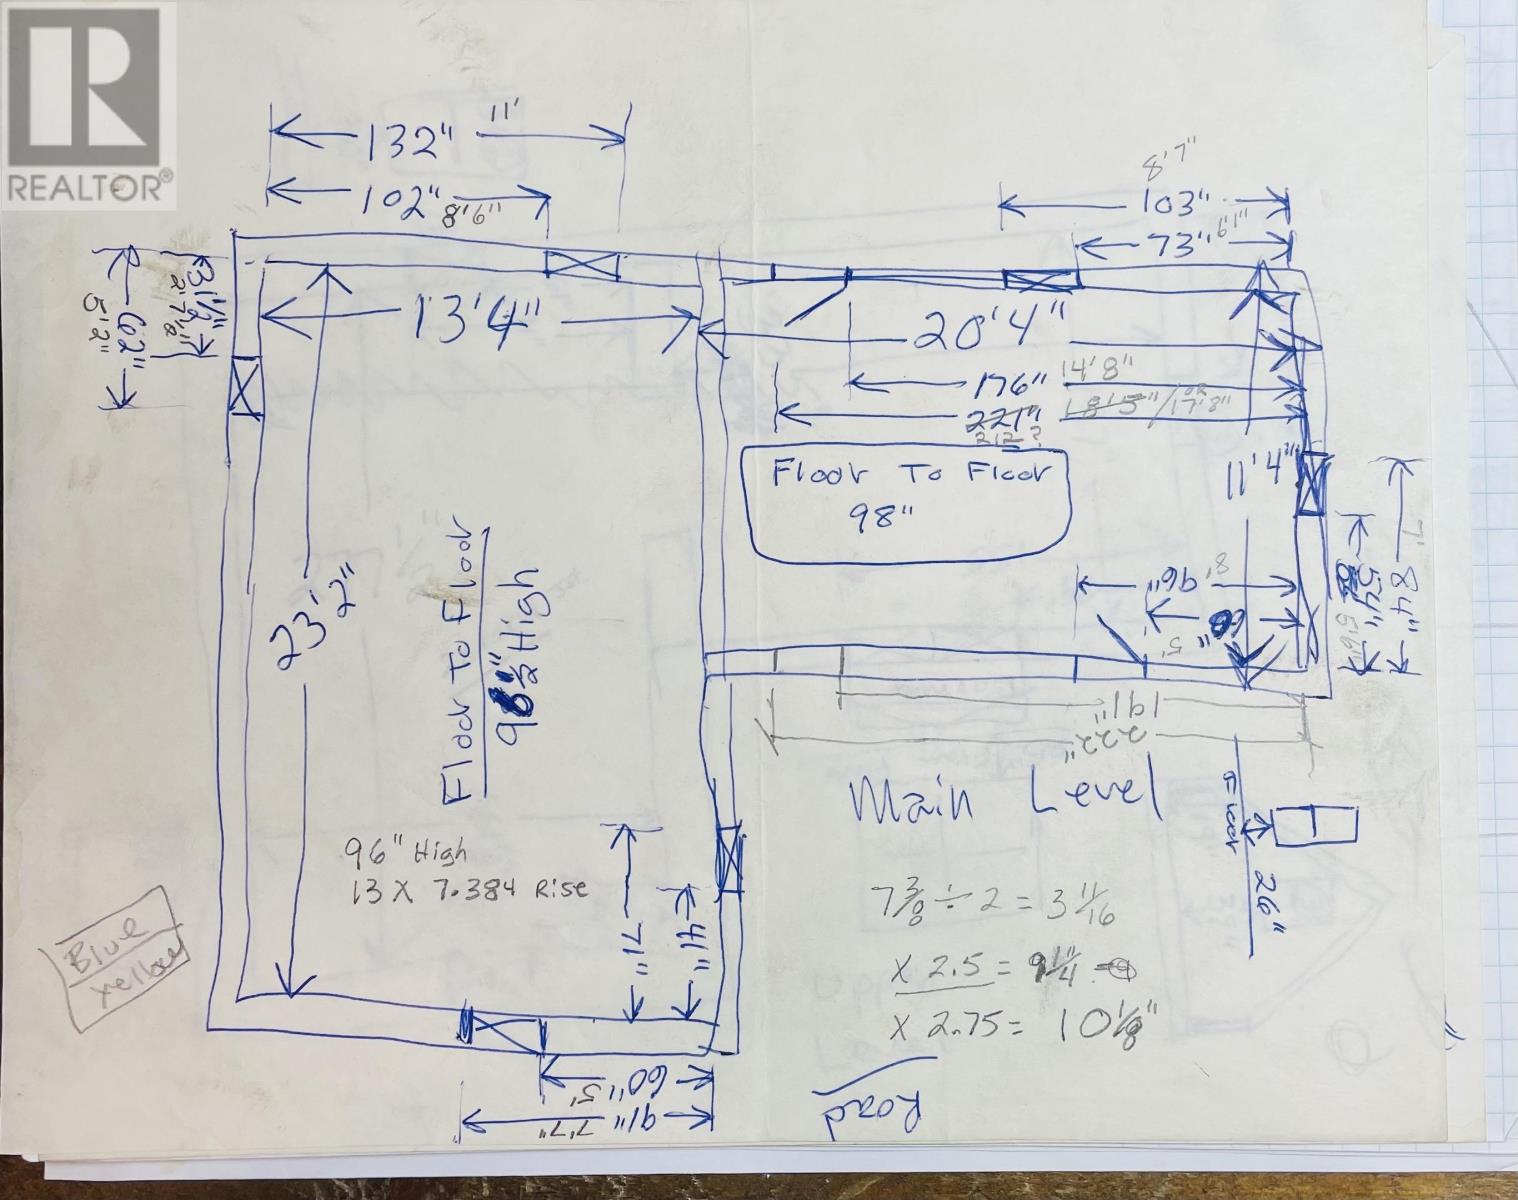 REALTOR®
132" 11'
102" 8'6"
8'7"
103"
73" 6'1"
31 1/2"
2'7 1/2"
62"
5'2"
13'4"
20'4"
176" 14'8"
221" 18'5" / or 17'8"
212?
Floor To Floor
98"
11'4"
7'
84"
54"
5'6"
8'
96"
5'
23'2"
Floor To Floor
98 1/2" High
191"
222"
Main Level
Floor
26"
96" High
13 x 7.384 Rise
71"
41"
7 3/8 ÷ 2 = 3 11/16
x 2.5 = 9 1/4"
x 2.75 = 10 1/8"
Blue
Yellow
60" 5'
91" 7'7"
Road